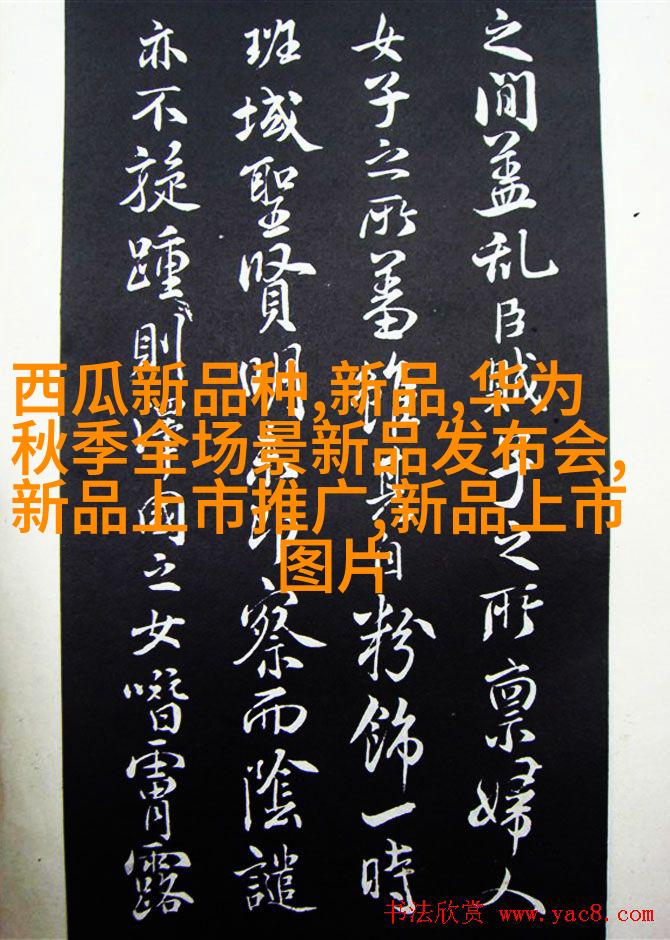 之間蓋乱臣賊子之所禀婦人
女子之所蓄雖其自粉飾一時
班域聖賢明察而陰譴
亦不旋踵則國之女霄露
西瓜新品种,新品,华为
秋季全场景新品发布会,
新品上市推广,新品上市
图片
书法欣赏 www.yac8.com